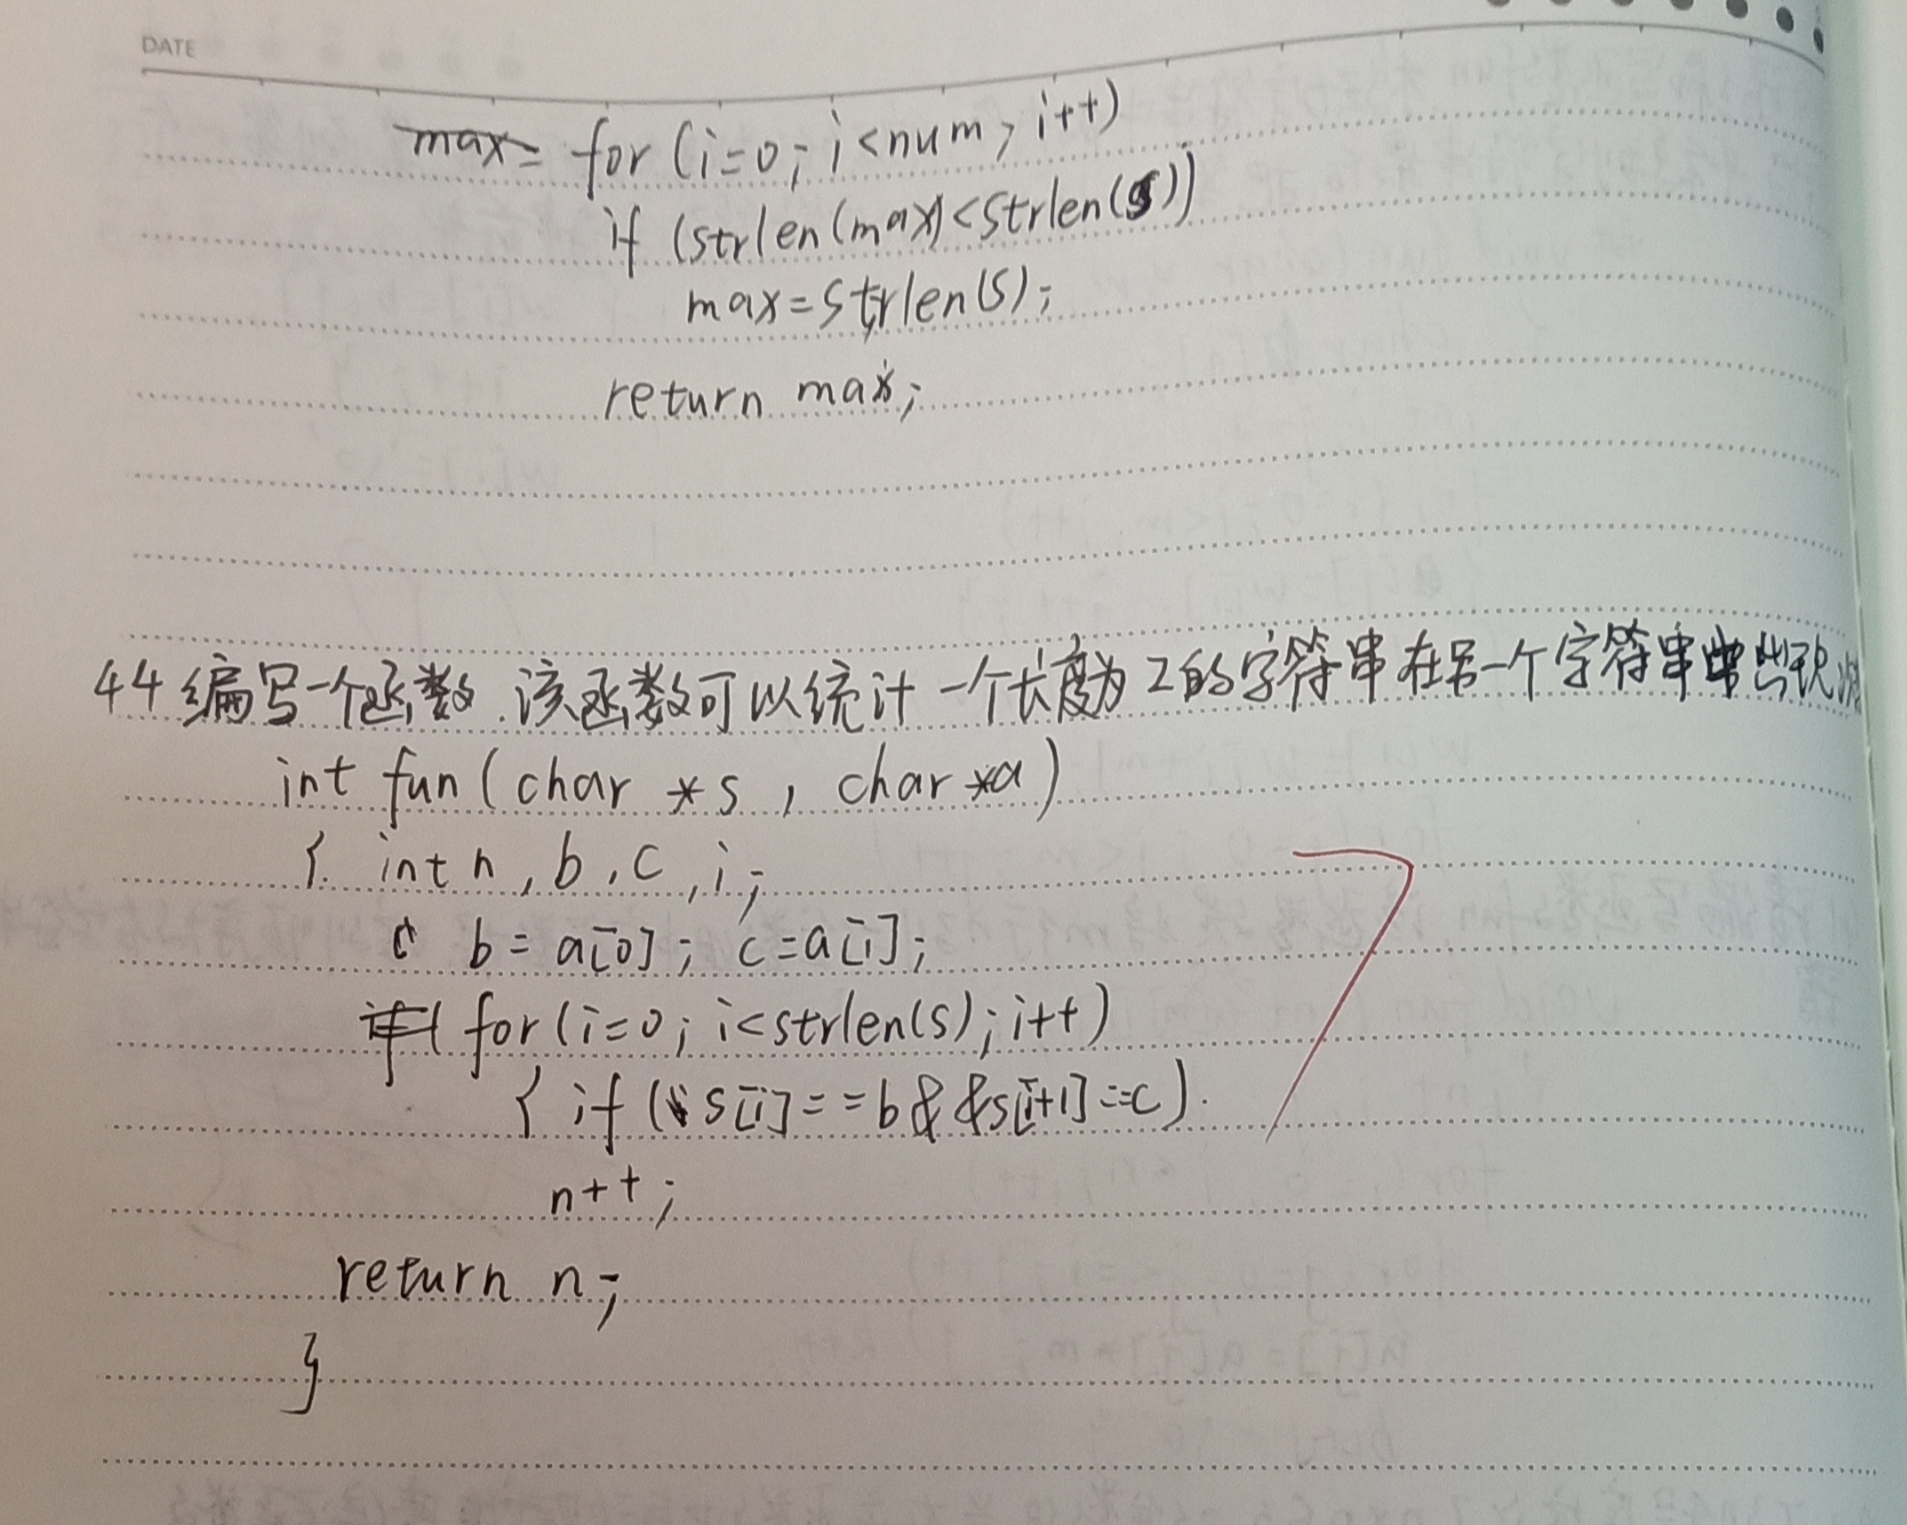 DATE
max= for (i=0; i<num; i++)
if (strlen(max)<strlen(s))
max=strlen(s);
return max;
44 编写一个函数.该函数可以统计一个长度为2的字符串在另一个字符串中出现
int fun(char *s, char *a)
{ int n, b, c, i;
b = a[0]; c=a[1];
for(i=0; i<strlen(s); i++)
{ if (s[i]==b&&s[i+1]==c).
n++;
return n;
}